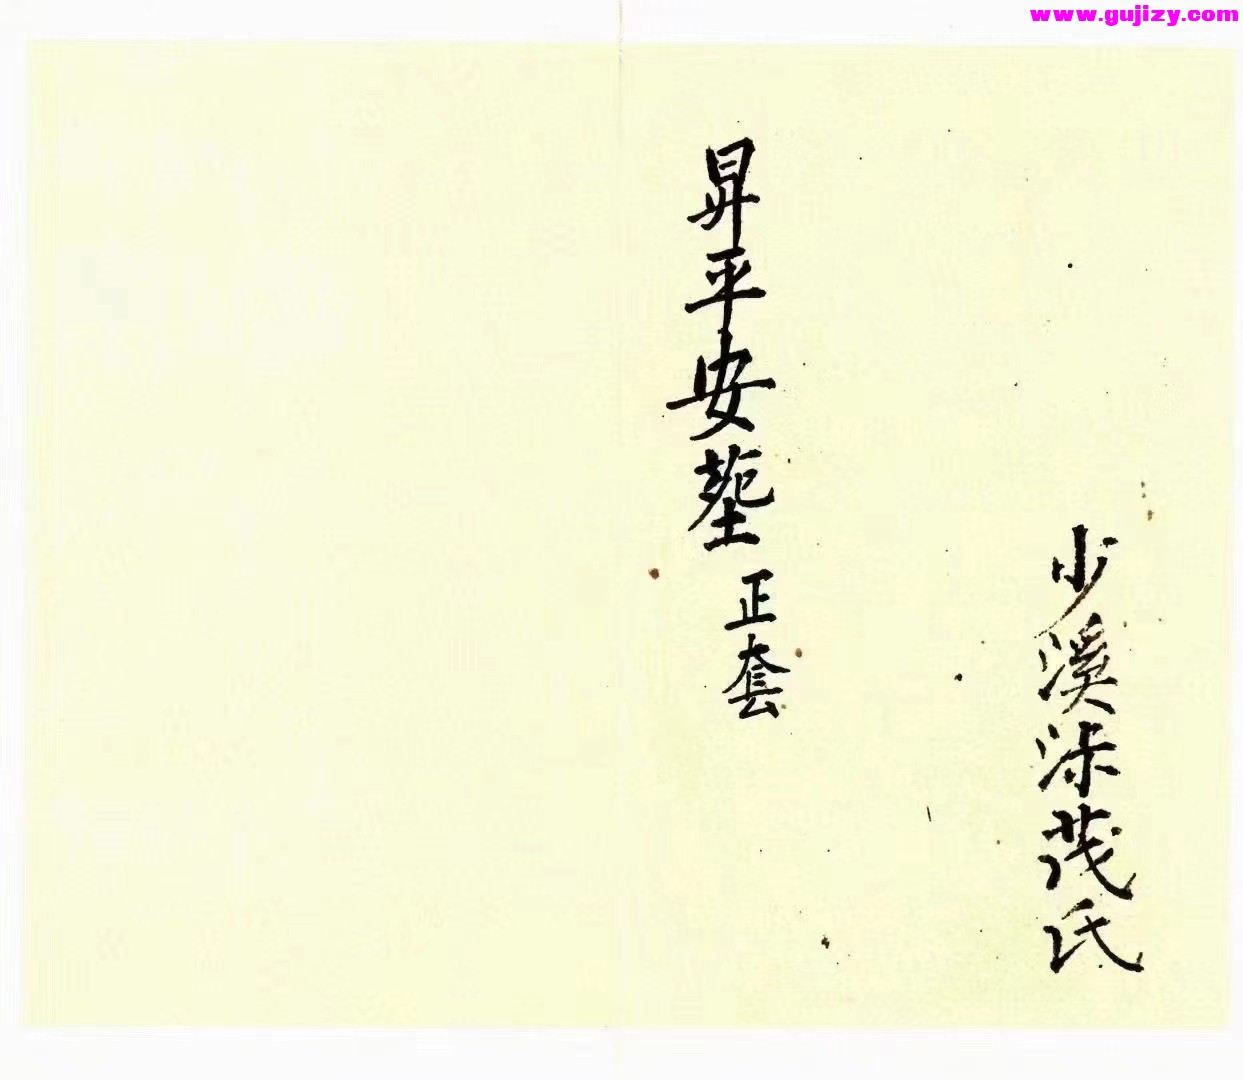 www.gujizy.com
少溪茂氏
昇平安塟正套